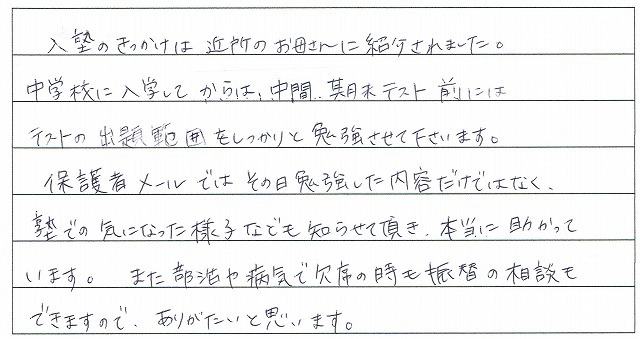 入塾のきっかけは近所のお母さんに紹介されました。
中学校に入学してからは、中間、期末テスト前には
テストの出題範囲をしっかりと勉強させて下さいます。
保護者メールではその日勉強した内容だけではなく、
塾での気になった様子なども知らせて頂き、本当に助かって
います。また部活や病気で欠席の時も振替の相談も
できますので、ありがたいと思います。